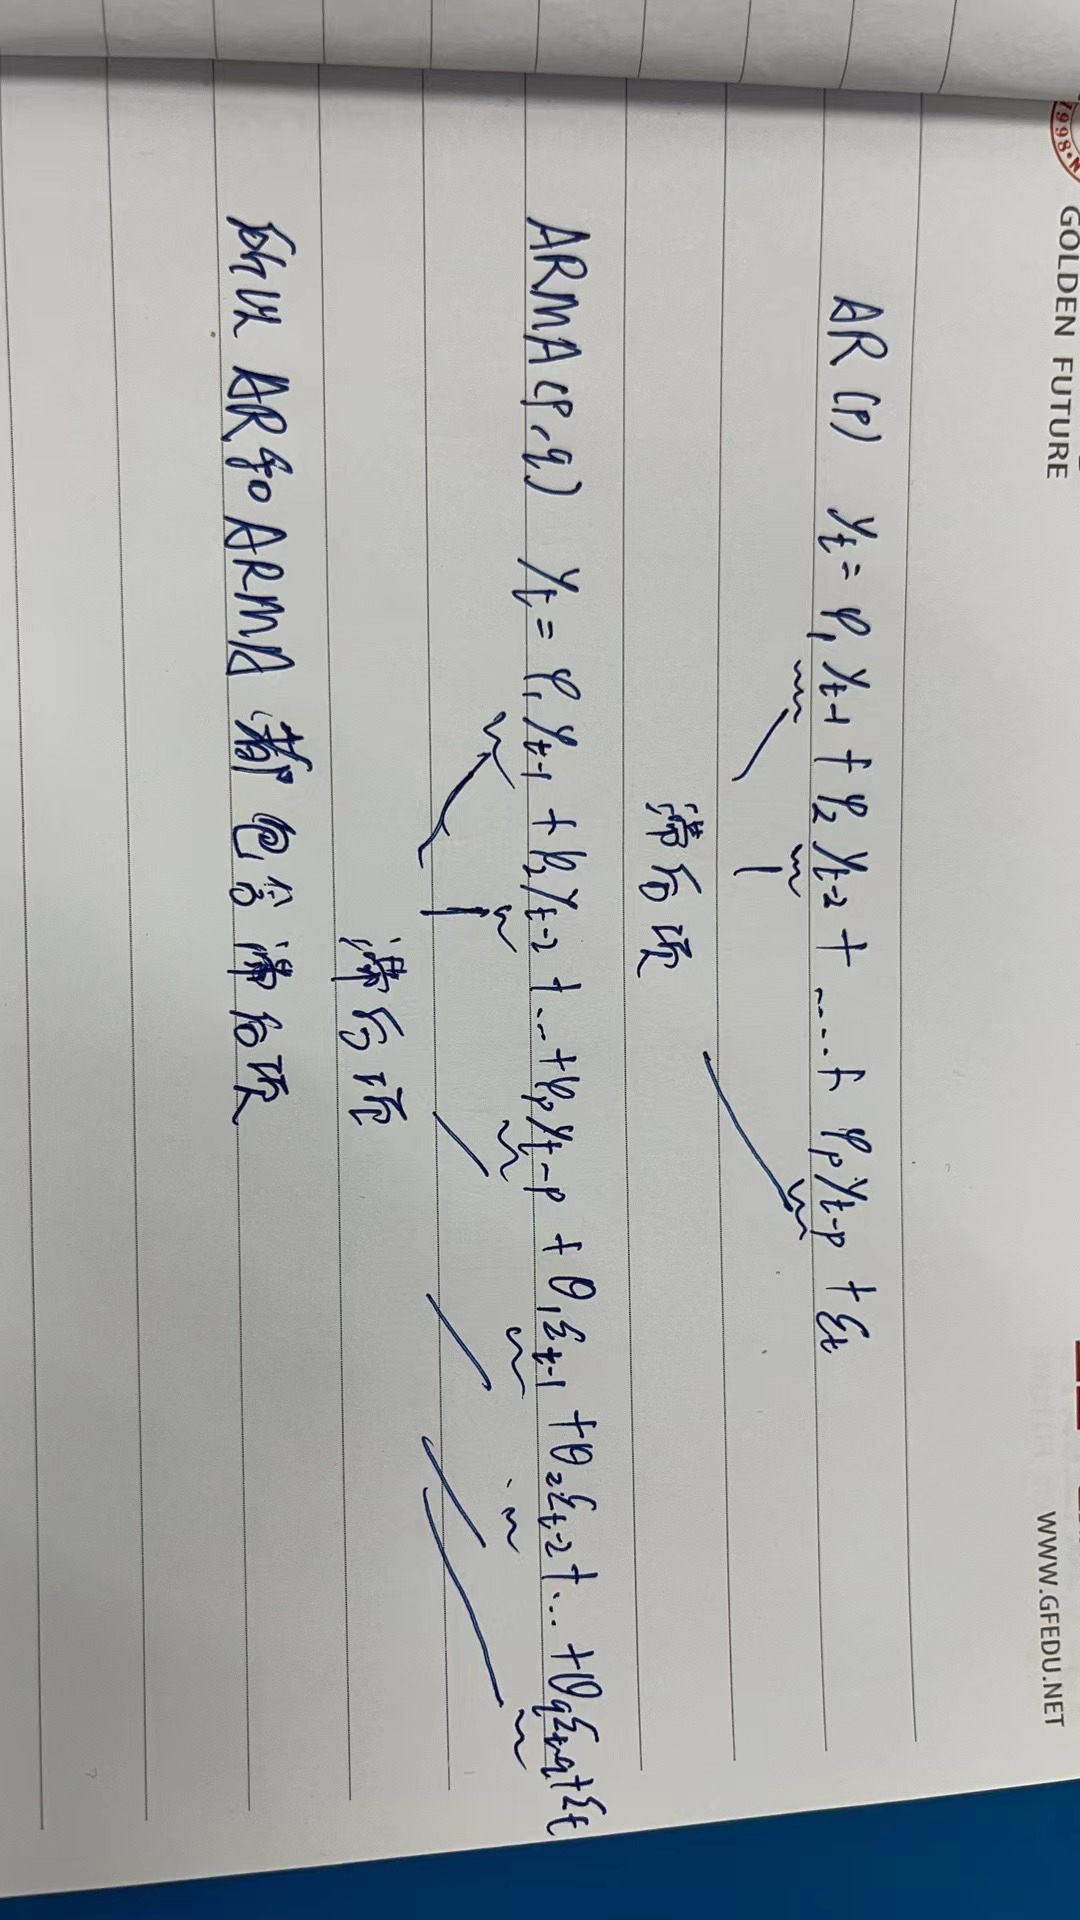 GOLDEN FUTURE WWW.GFEDU.NET
AR(p) yt = φ1 yt-1 + φ2 yt-2 + .... + φp yt-p + εt
滞后项
ARMA(p,q) yt = φ1 yt-1 + φ2 yt-2 + ... + φp yt-p + θ1 εt-1 + θ2 εt-2 + ... + θq εt-q + εt
滞后项
所以 AR和ARMA 都包含滞后项